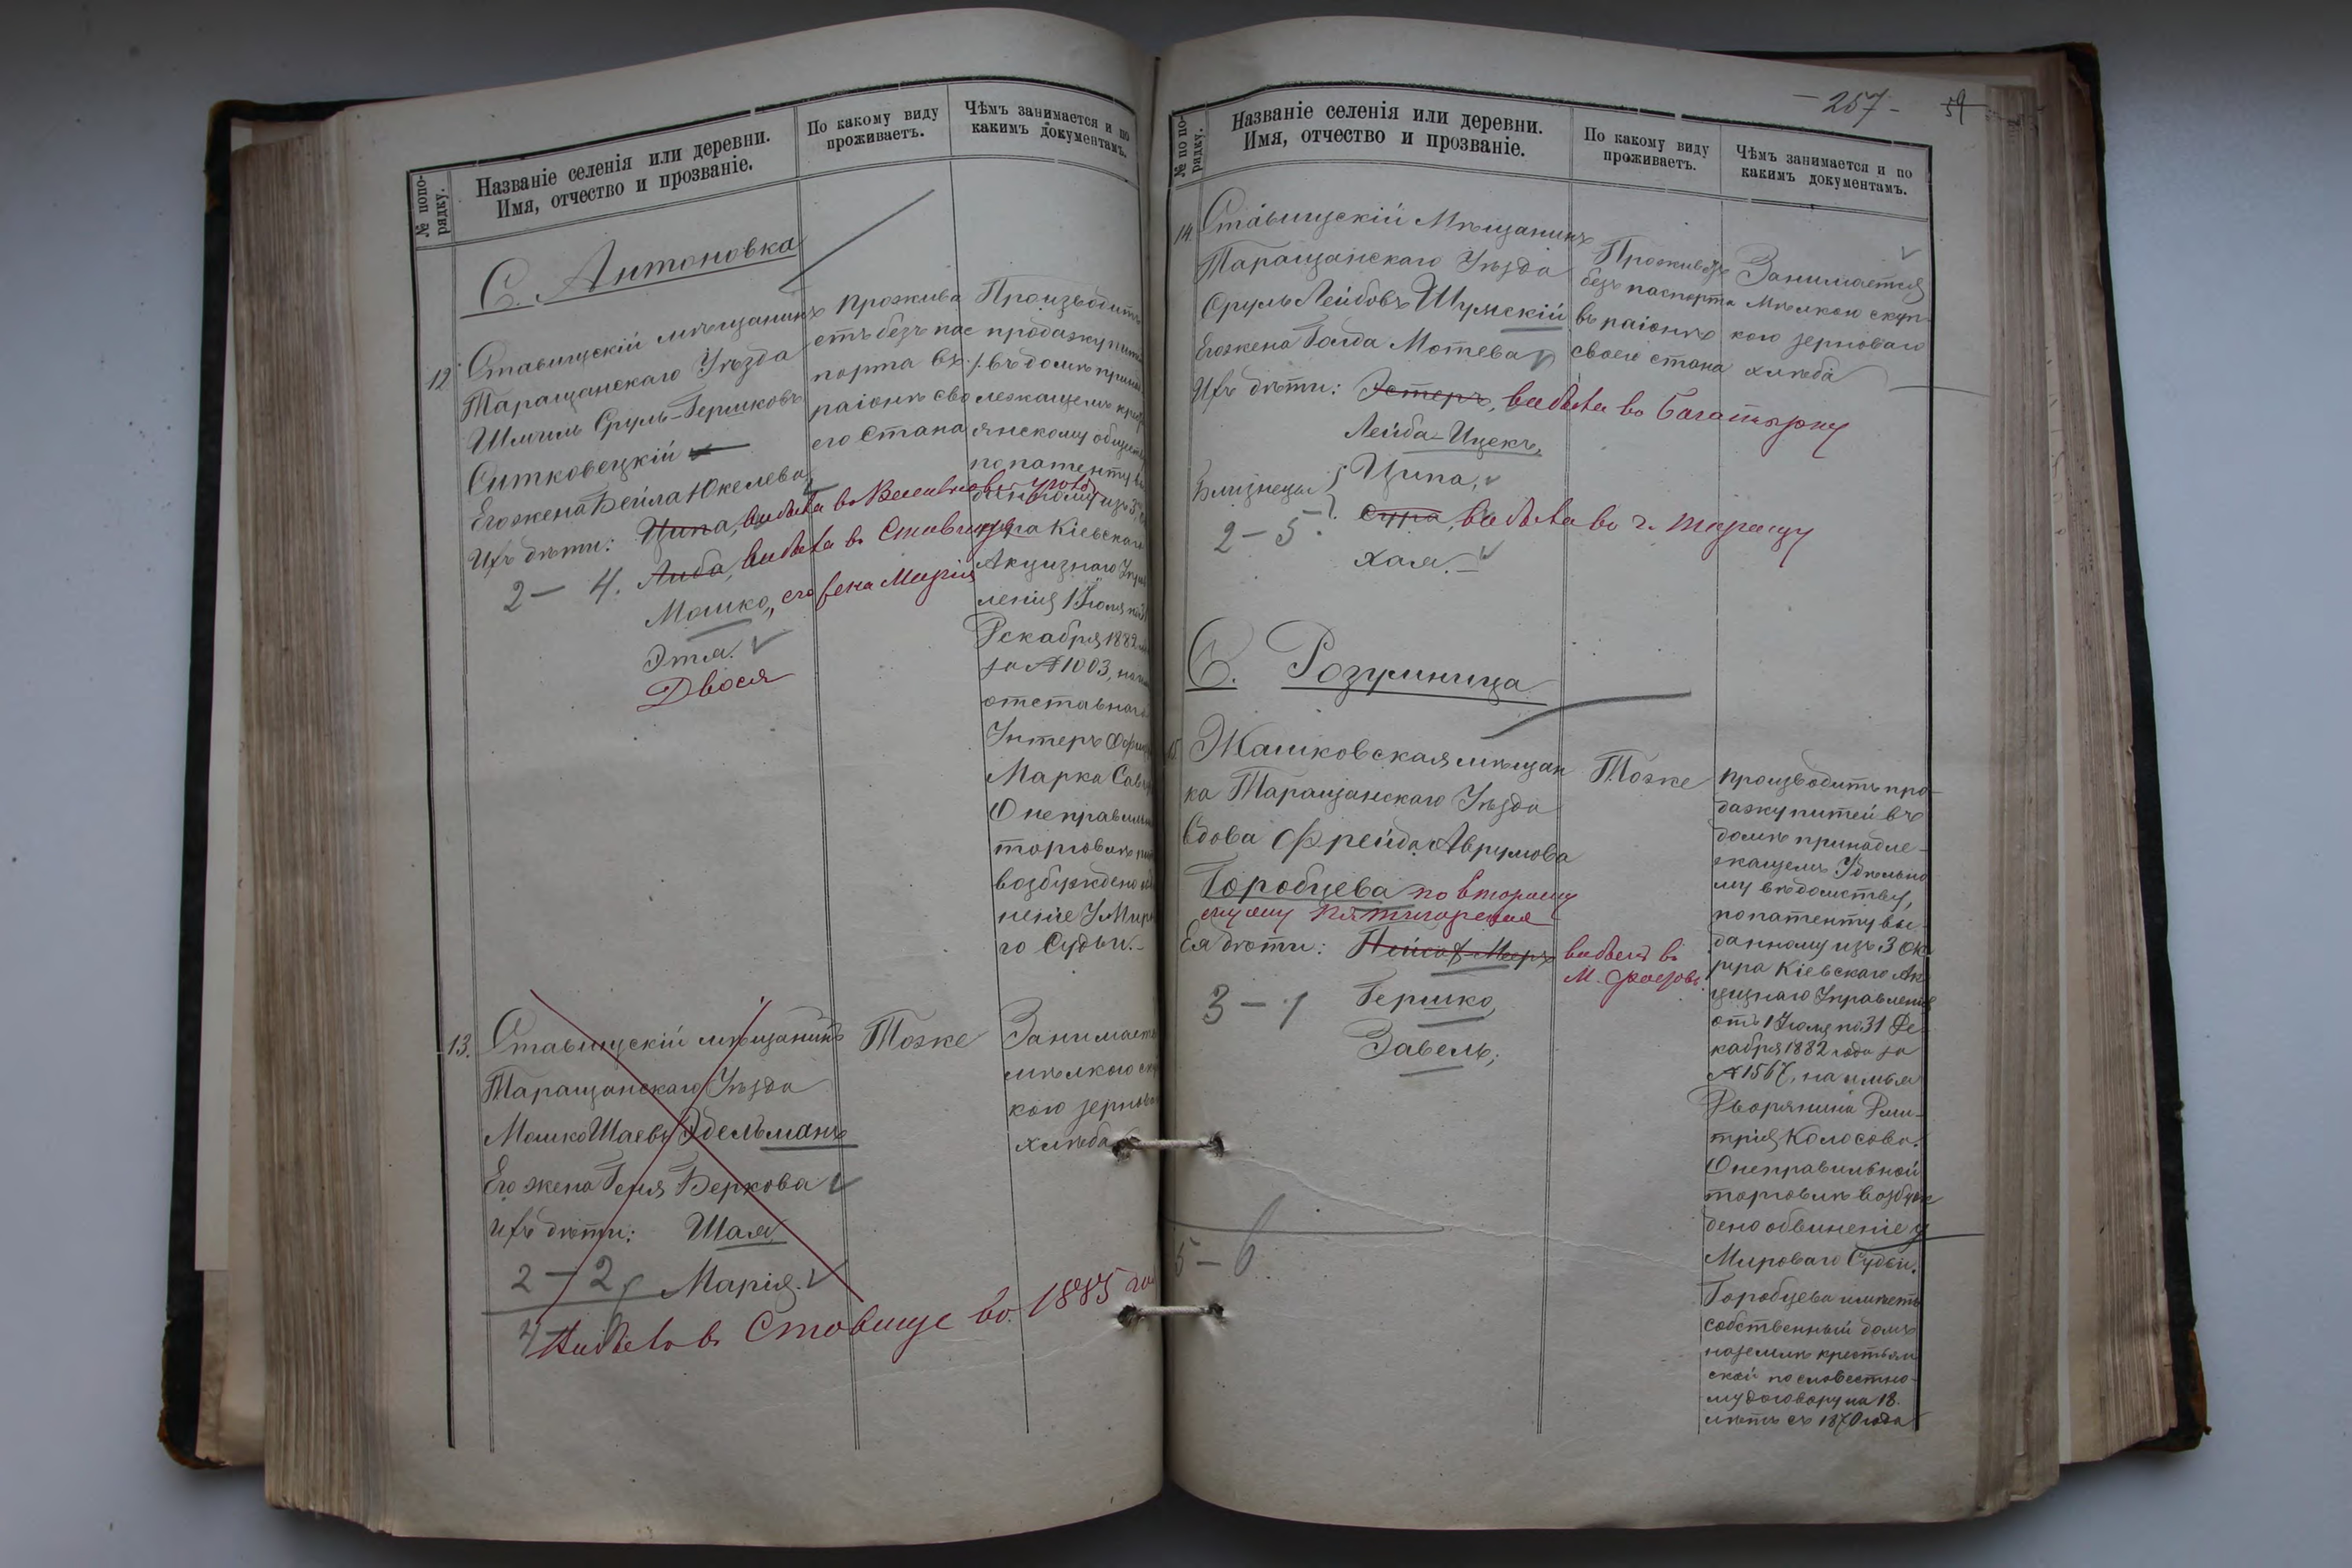 № попо-
рядку.
Названіе селенія или деревни.
Имя, отчество и прозваніе.
По какому виду
проживаетъ.
Чѣмъ занимается и по
какимъ документамъ.
С. Антоновка
12.
Ставищскій мѣщанинъ
Таращанскаго Уѣзда
Шмиль Сруль-Гершковъ
Ситковецкій
Его жена Бейла Юкелева
Ихъ дѣти: Ципа, выдата во
2 – 4. Либа, выдата в. Ставище
Мошко, его жена Мирія
Этля.
Двося
прожива
етъ безъ пас
порта въ
раіонѣ сво
его Стана
Производитъ
продажу
въ домѣ
лежащемъ
янскому
по патенту
изъ 5
Кіевскаго
Акцизнаго
ленія 1 Іюля
Декабря 1882
за № 1003, на
отставнаго
Унтеръ Офи
Марка
О неправиль
торговлѣ
возбуждено
неніе У Миро
го Судьи.
13.
Ставищскій мѣщанинъ
Таращанскаго Уѣзда
Мошко Шаевъ Эдельманъ
Его жена Геня Беркова
Ихъ дѣти: Шая
2 – 2 Марія.
4
в. Ставище во 1885
Тоже
Занимает
мѣлкою
кою зернова
хлѣба
– 257 – 59
№ по по-
рядку.
Названіе селенія или деревни.
Имя, отчество и прозваніе.
По какому виду
проживаетъ.
Чѣмъ занимается и по
какимъ документамъ.
14.
Ставищскій Мѣщанинъ
Таращанскаго Уѣзда
Сруль Лейбовъ Шумскій
Его жена Голда Мотева
Ихъ дѣти: Эстеръ, выдата во Багатырку
Лейба-Ицекъ,
Близнецы { Ципа,
2 – 5. Сура, выдата во г. Таращу
Хая.
Проживаетъ
безъ паспорта
въ раіонѣ
своего стана
Занимается
Мѣлкою скуп-
кою зерноваго
хлѣба
С. Розумница
15.
Жашковская мѣщан
ка Таращанскаго Уѣзда
вдова Фрейда Аврумова
Горобцева по второму
мужу Пятигорская
Ея дѣти: Пейсах-Меер выдыл в
М.
3 – 1 Гершко,
Завель,
5 – 6
Тоже
производитъ про-
дажу питей въ
домѣ принадле-
жащемъ Удѣльно
му вѣдомству,
по патенту вы-
данному изъ 3 Ок
руга Кіевскаго Ак
цизнаго Управленія
отъ 1 Іюля по 31 Де-
кабря 1882 года за
№ 1567, на имя
Дворянина Дми-
трія Колосова.
О неправильной
торговлѣ возбуж
дено обвиненіе у
Мироваго Судьи.
Горобцева имѣетъ
собственный домъ
на землѣ крестьян
ской по словестно-
му договору на 18
лѣтъ съ 1870 года